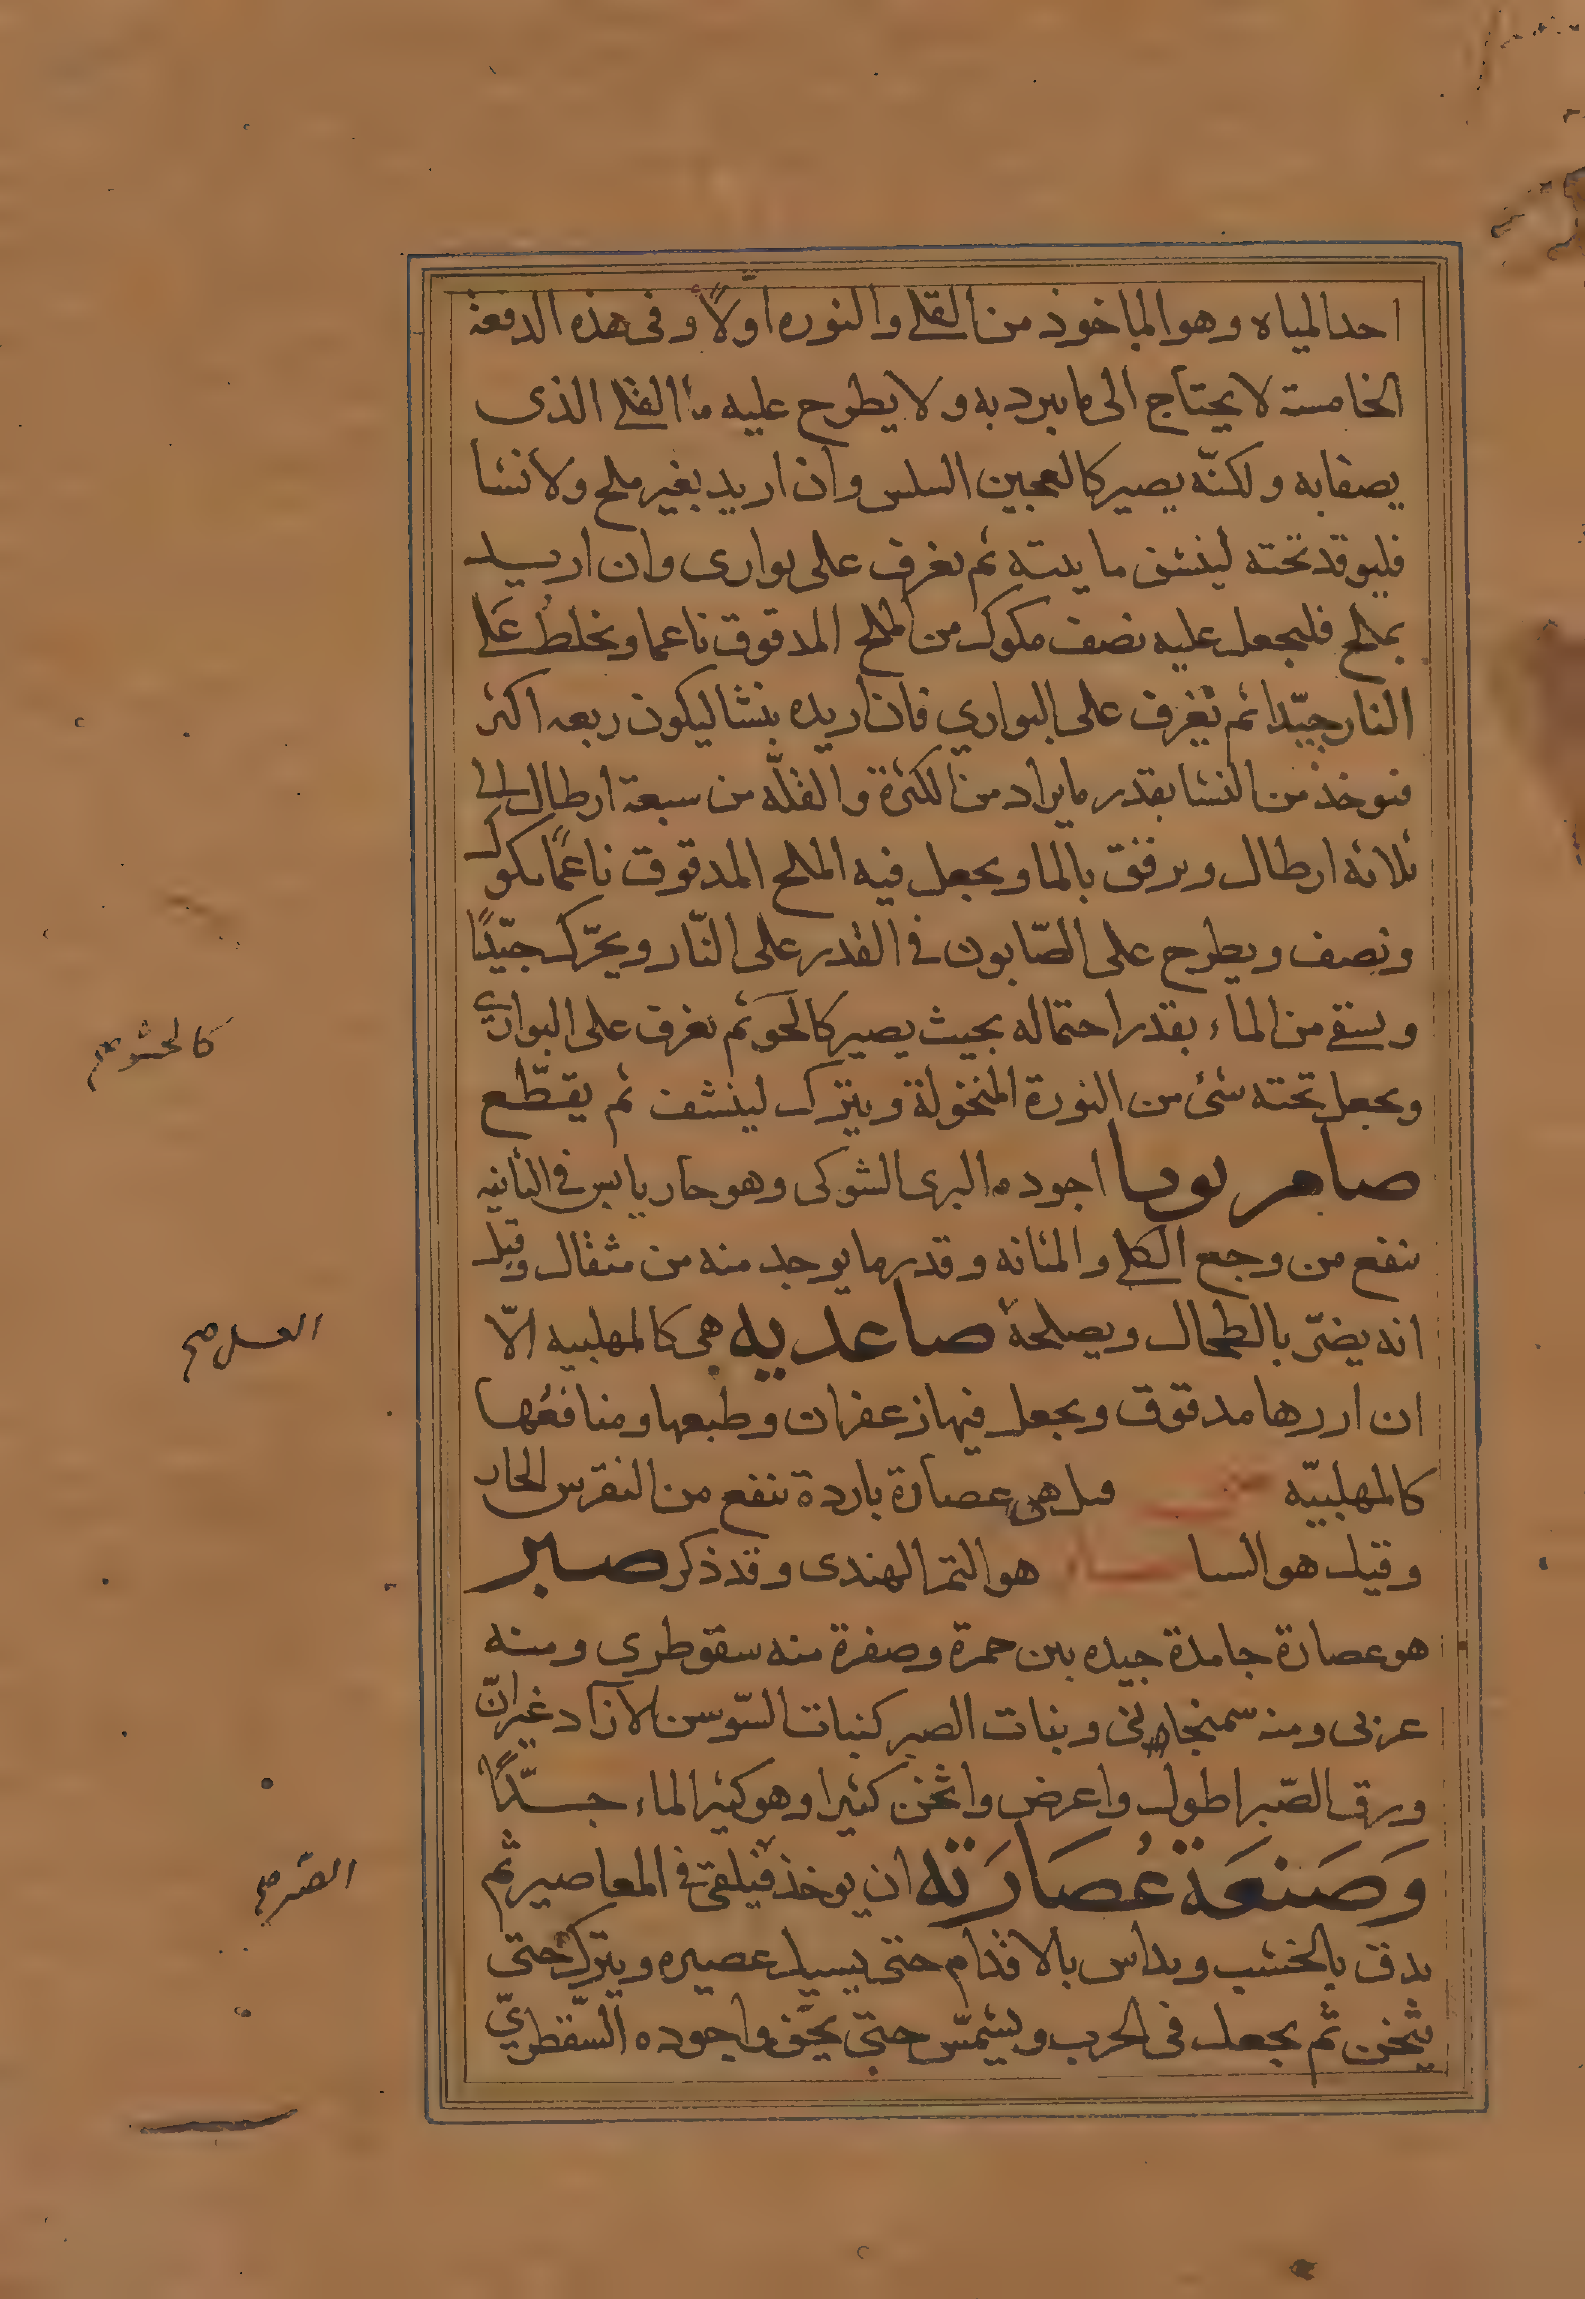 احد المياه وهو الماخوذ من القلي والنوره اوّلاً وفى هذه الدفعة
الخامسة لا يحتاج الى ما يبرد به ولا يطرح عليه ما القلي الذى
يصفا به ولكنّه يصير كالعجين السلس وان اريد بغير ملح ولا نشا
فليوقد تحته لينشف ما يته ثم يغرف على بوارى وان اريد
بملح فليجعل عليه نصف مكوك من الملح المدقوق ناعما ويخلط على
النار جيّدا ثم يغرف على البواري فان اريده بنشا ليكون ريعه اكثر
فيوخذ من النشا بقدر ما يراد من الكثرة والقلّه من سبعة ارطال الى
ثلاثه ارطال ويرقق بالما ويجعل فيه الملح المدقوق ناعمًا مكوك
ونصف ويطرح على الصّابون في القدر على النّار ويحرّك جيّدًا
ويسقي من الماء بقدر احتماله بحيث يصير كالحو ثم يغرف على البواري
كالحشو صح
ويجعل تحته شئ من النورة المنخولة ويترك لينشف ثم يقطّع
صامريوما اجوده البرى الشوكى وهو حار يابس في الثانيه
ينفع من وجع الكلي والمثانه وقدر ما يوخذ منه من مثقال وقيل
انه يضرّ بالطحال ويصلحه صاعديه هى كالمهلبيه الّا
العسل صح
ان ارزها مدقوق ويجعل فيها زعفران وطبعها ومنافعُها
كالمهلبيّه قيل هى عصارة باردة تنفع من النقرس الحار
وقيل هو السا هو التمر الهندى وقد ذكر صبر
هو عصارة جامدة جيده بين حمرة وصفرة منه سقوطرى ومنه
عربى ومنه سمنجانى ونبات الصبر كنبات السّوسن الازاد غير انّ
ورق الصّبر اطول واعرض واثخن كثيرا وهو كثير الماء جدّاً
وَصَنعَة عُصَارَته ان يوخذ فيلقى في المعاصير ثم
الصّبر صح
يدق بالخشب ويداس بالاقدام حتى يسيل عصيره ويترك حتى
يثخن ثم يجعل فى الجرب ويشمّس حتى يجفّ واجوده السّقطريّ